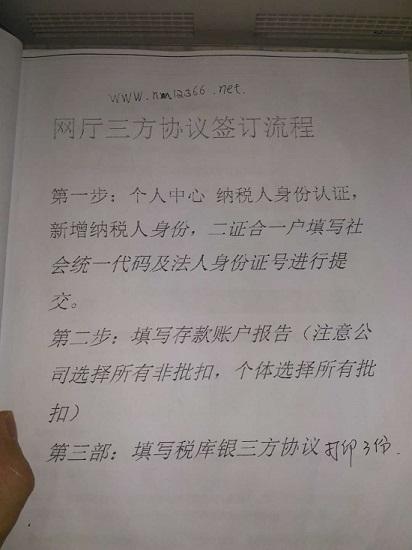 www.nm12366.net.
网厅三方协议签订流程
第一步：个人中心 纳税人身份认证，
新增纳税人身份，二证合一户填写社
会统一代码及法人身份证号进行提
交。
第二步：填写存款账户报告（注意公
司选择所有非批扣，个体选择所有批
扣）
第三部：填写税库银三方协议打印3份.